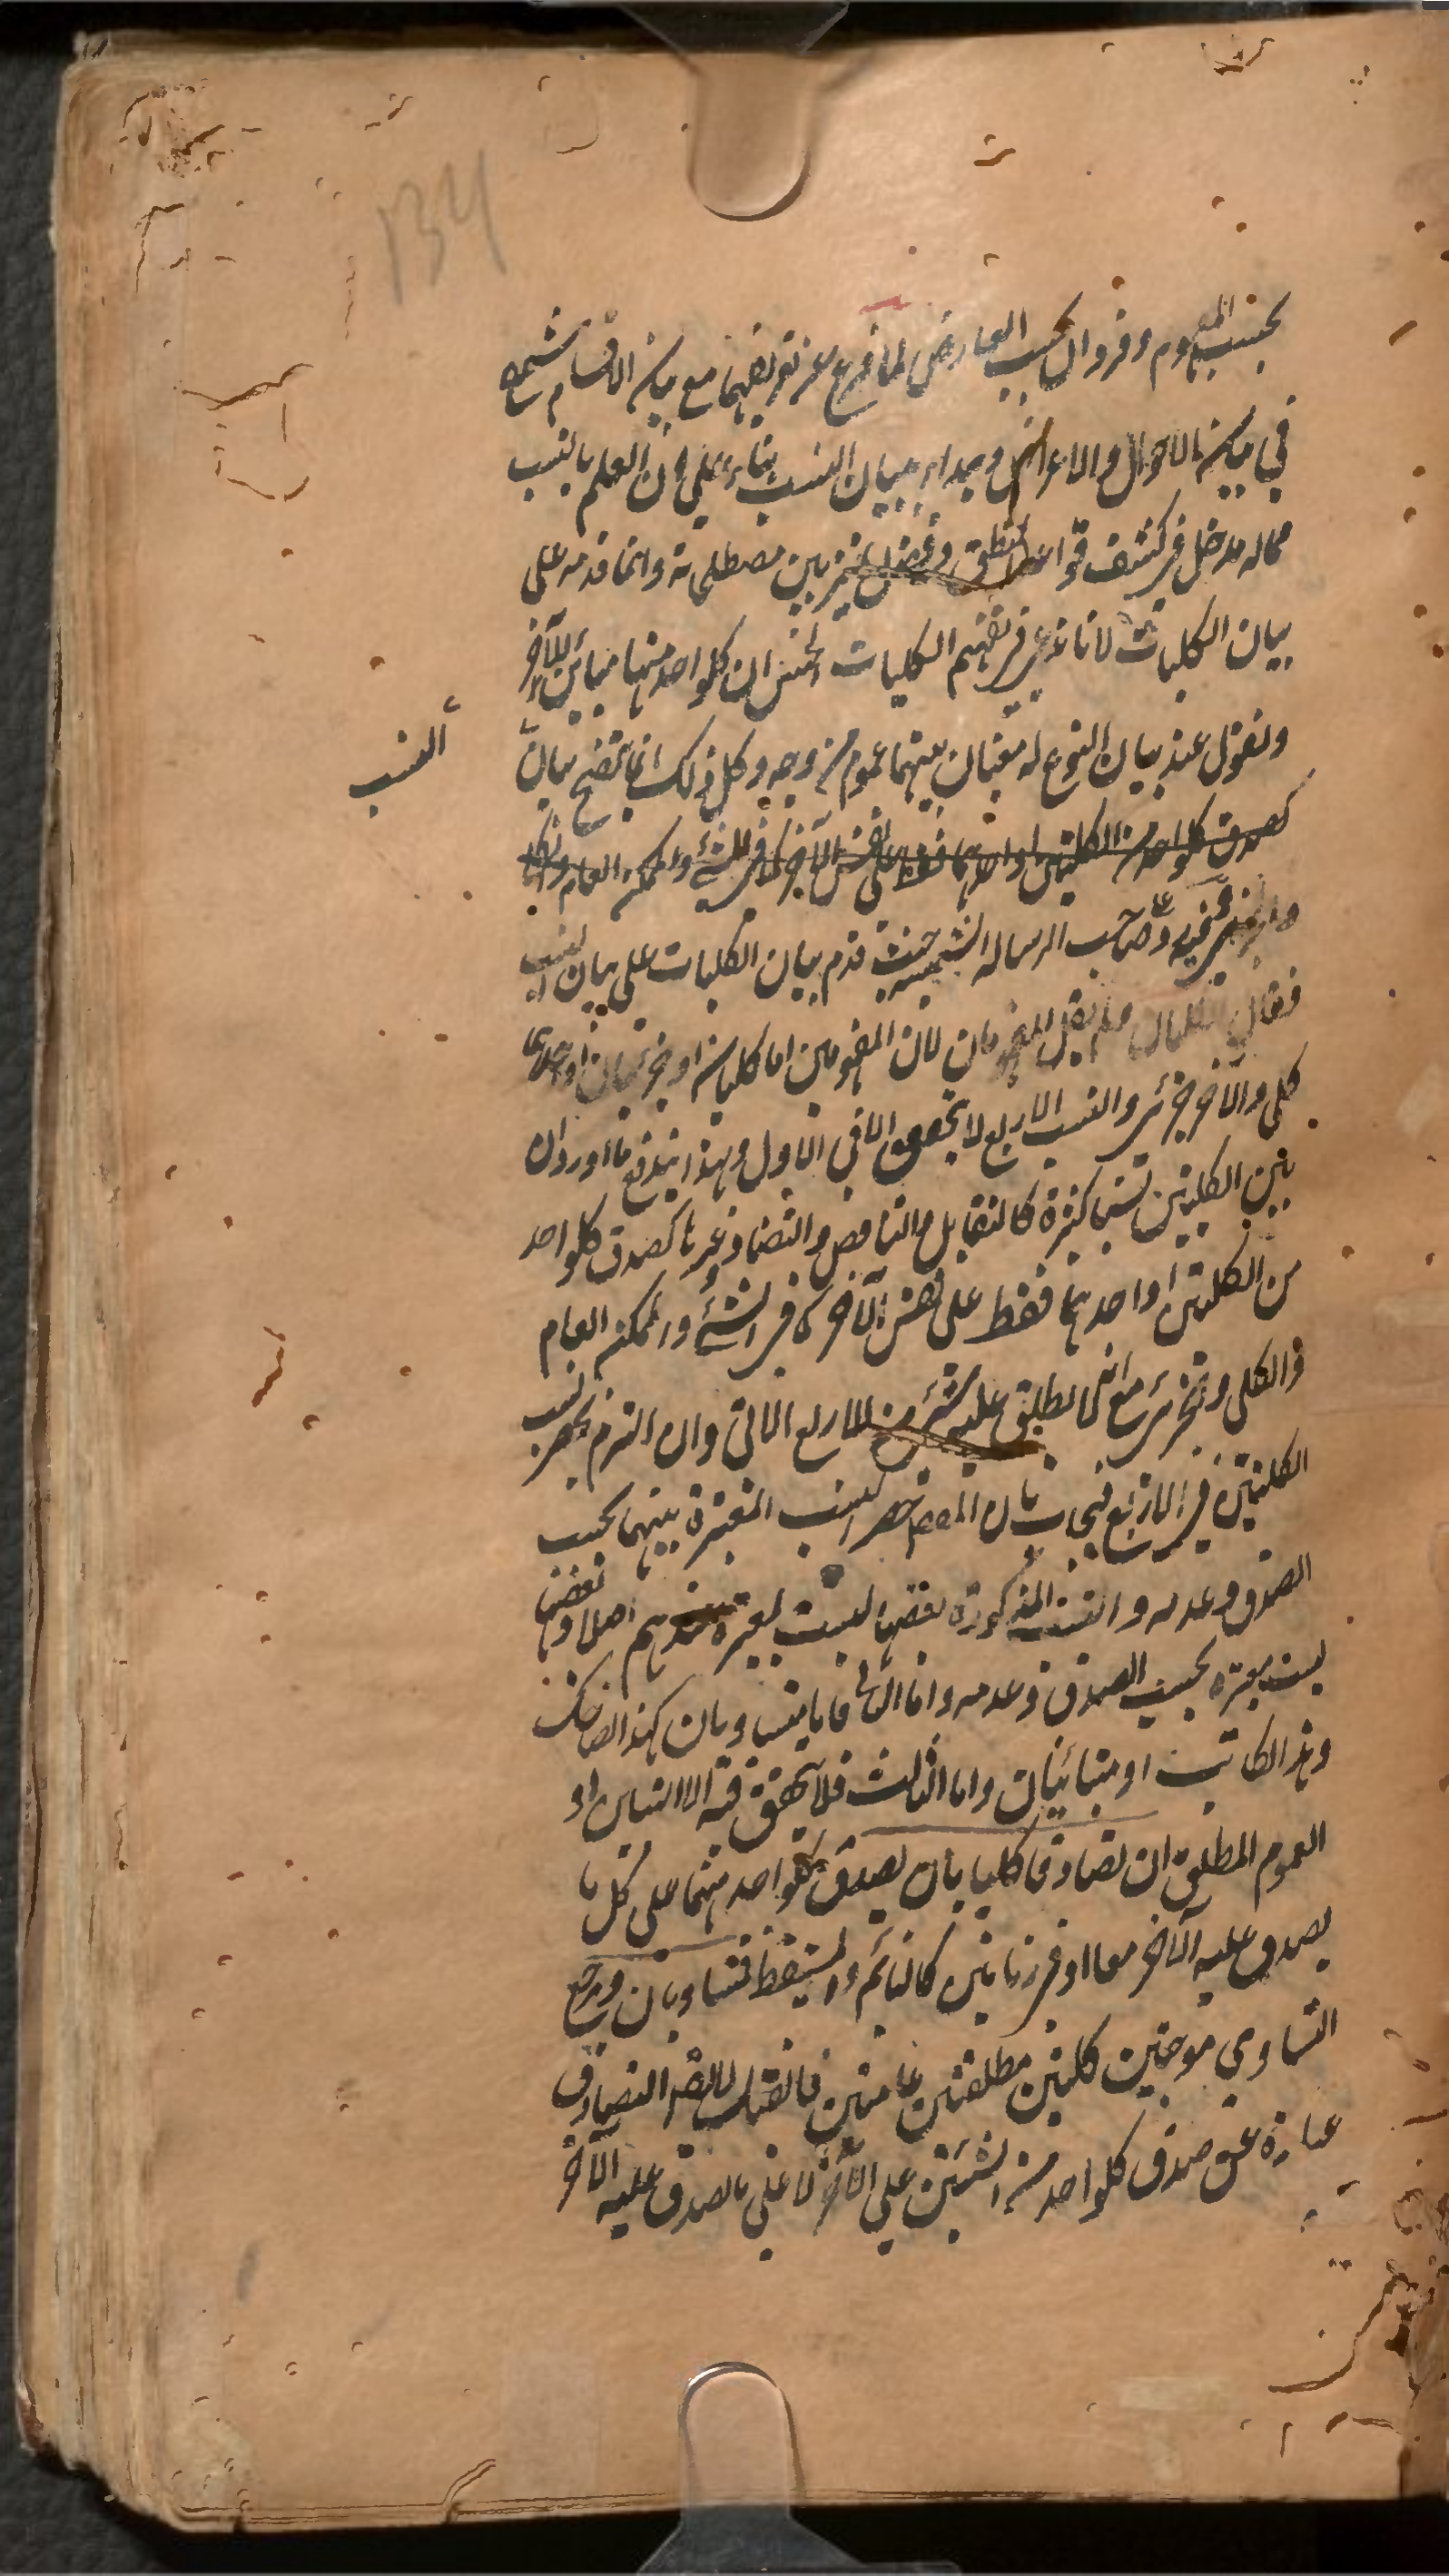 134
بحسب المفهوم وفروال بحسب العارض لما فرغ عن تعريفهما مع بيان الاقسام شرع
في بيان الاحوال والاعراض وبدأ ببيان النسب بناء على ان العلم بالنسب
مما له مدخل في كشف قواعد المنطق وفضل تميز بين مصطلحاته وانما قدمه على
بيان الكليات لانا ندعي في تقسيم الكليات الخمس ان كلواحد منها مباين للآخر
ونقول عند بيان النوع له معنيان بينهما عموم من وجه وكل ذلك انما يتضح ببيان
النسب
كصدق كلواحد من الكليتين او احدهما فقط على نفس الآخر كما في الشيء والممكن العام
صاحب الرسالة الشمسية حيث قدم بيان الكليات على بيان النسب
فقال الكليان ولم يقل المفهومان لان المفهومين اما كليان او جزئيان او احدهما
كلي والآخر جزئي والنسب الاربع لا يتحقق الا في الاول وبهذا يندفع ما اورد ان
بين الكليتين نسبا كثيرة كالتقابل والتناقض والتضاد وغيرها كصدق كلواحد
من الكليتين او احدهما فقط على نفس الآخر كما في الشيء والممكن العام
والكلي والجزئي مع انه لا يطلق عليه شيء من الاربع الآتي وان التزم بحصر نسب
الكليتين في الاربع فيجاب بان المقصود حصر النسب المعتبرة بينهما بحسب
الصدق وعدمه والنسب المذكورة بعضها ليست بمعتبرة عندهم اصلا وبعضها
ليست معتبرة بحسب الصدق وعدمه واما الثاني فاما متساويان كهذا الضاحك
وهذا الكاتب او متباينان واما الثالث فلا يتحقق فيه الا التباين او
العموم المطلق ان تصادقا كليا بان يصدق كلواحد منهما على كل ما
يصدق عليه الآخر معا او في زمانين كالنائم والمستيقظ فمتساويان ومرجع
التساوي موجبتين كليتين مطلقتين عامتين فان قلت التصادق
عبارة عن صدق كلواحد من الشيئين على الآخر لا على ما صدق عليه الآخر